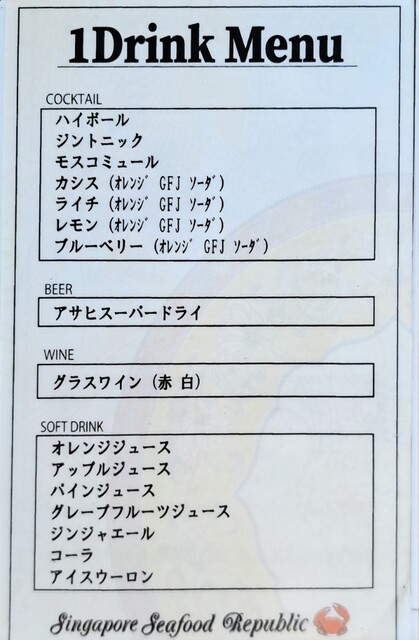 1Drink Menu
COCKTAIL
ハイボール
ジントニック
モスコミュール
カシス (ｵﾚﾝｼﾞ GFJ ｿｰﾀﾞ)
ライチ (ｵﾚﾝｼﾞ GFJ ｿｰﾀﾞ)
レモン (ｵﾚﾝｼﾞ GFJ ｿｰﾀﾞ)
ブルーベリー (ｵﾚﾝｼﾞ GFJ ｿｰﾀﾞ)
BEER
アサヒスーパードライ
WINE
グラスワイン (赤 白)
SOFT DRINK
オレンジジュース
アップルジュース
パインジュース
グレープフルーツジュース
ジンジャエール
コーラ
アイスウーロン
Singapore Seafood Republic